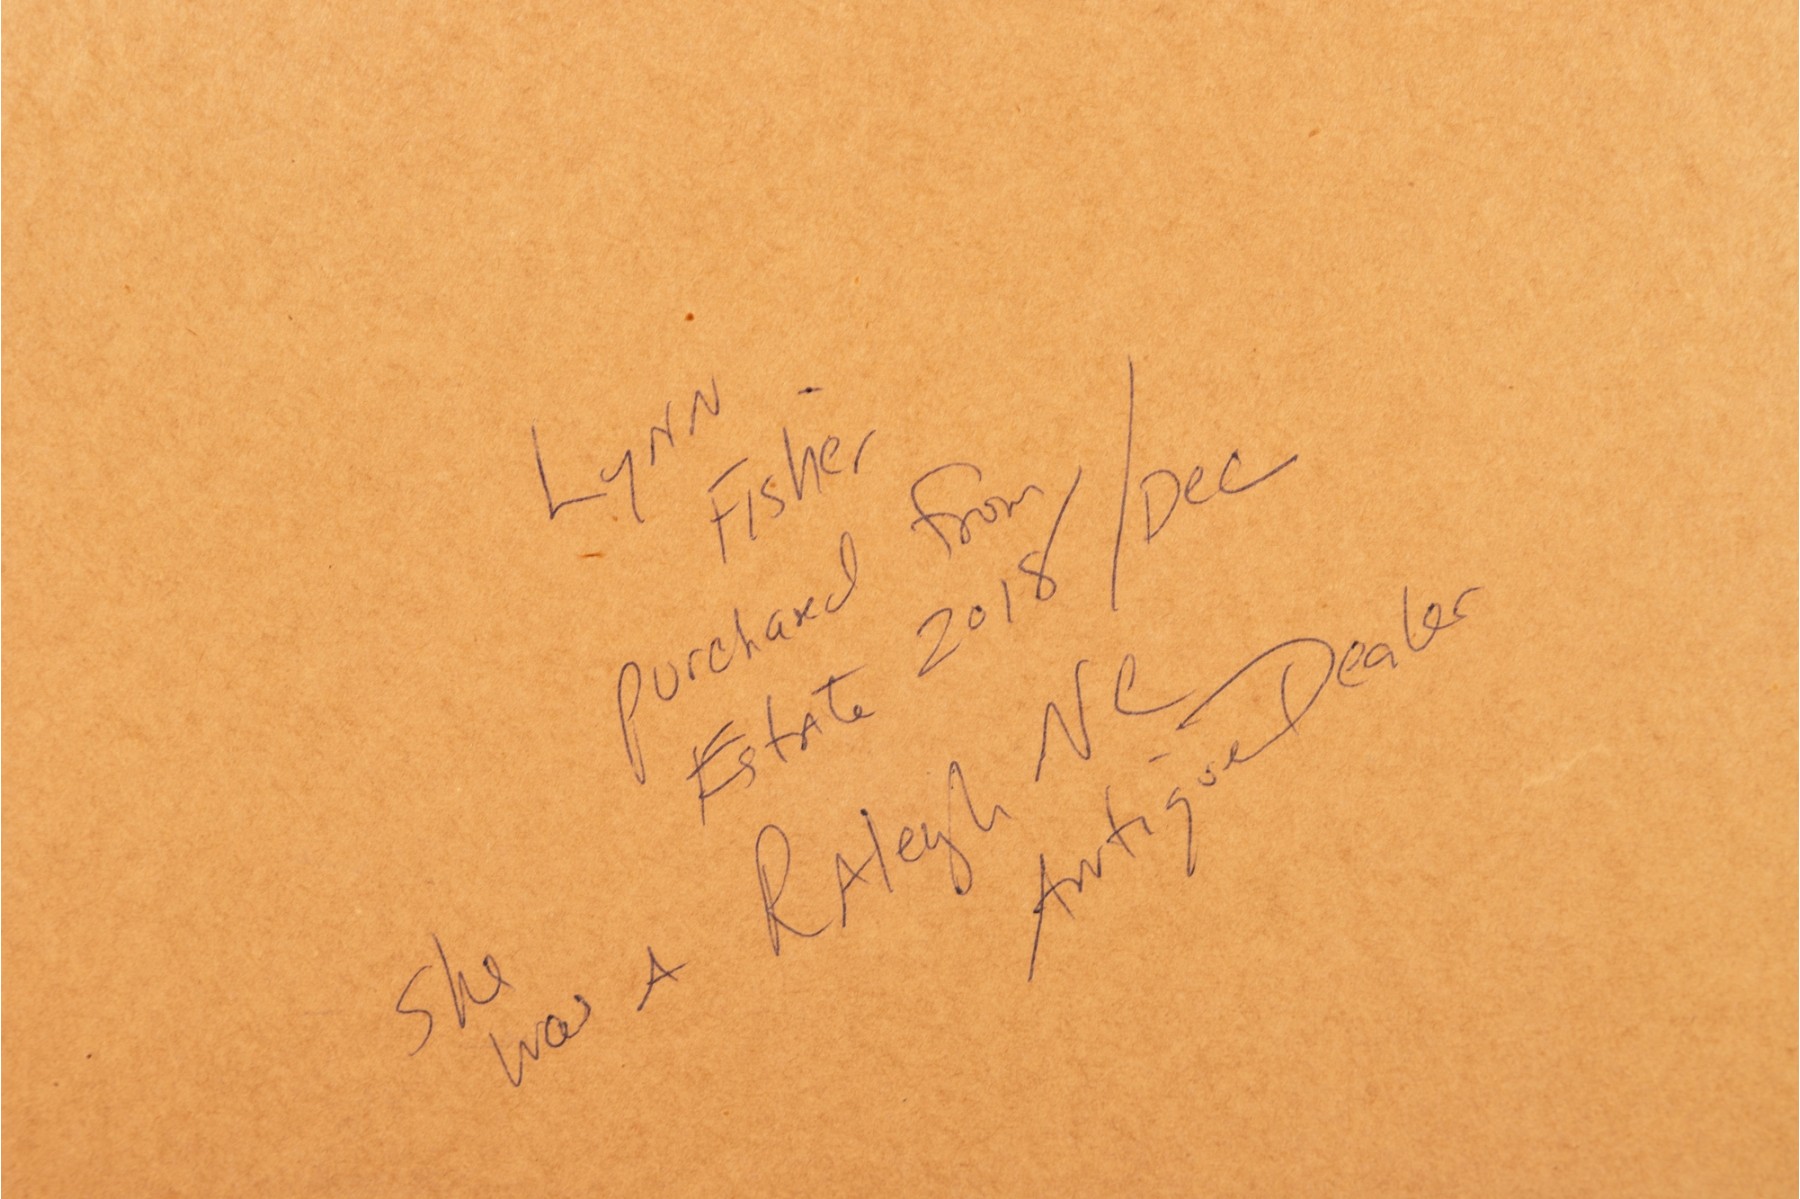 Lynn
Fisher
purchased from
Estate 2018/Dec
She
was A Raleigh NC
Antique Dealer